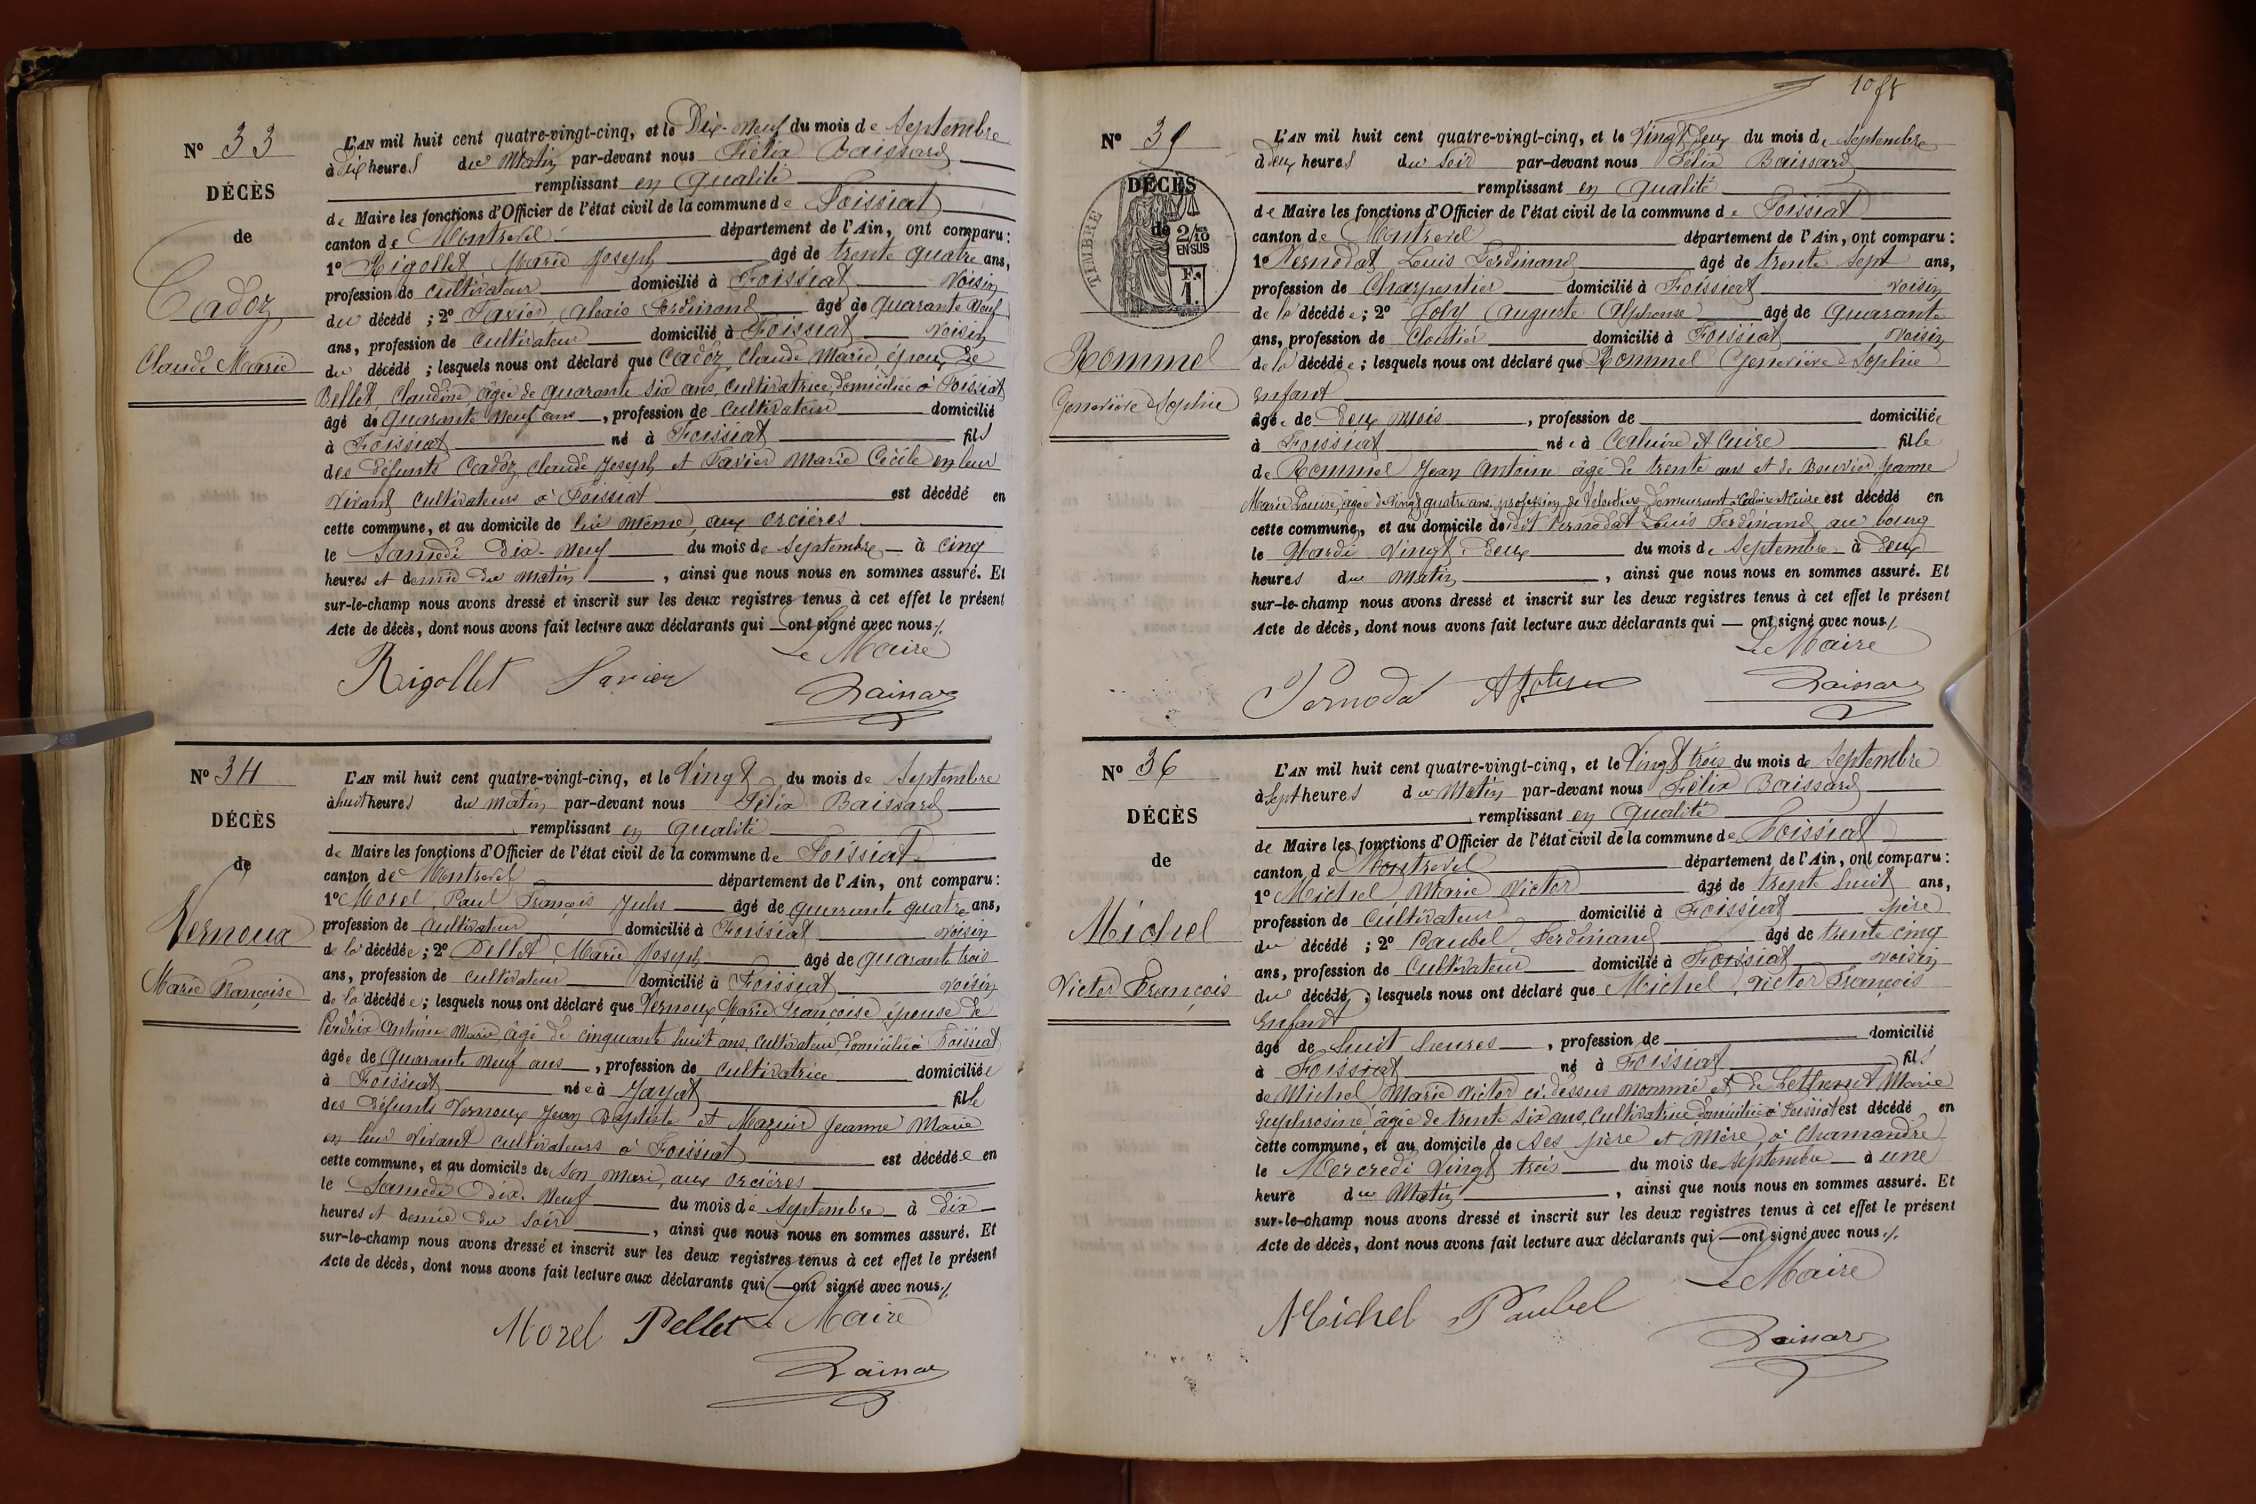 N° 33
DÉCÈS
de
Cadoz
Claude Marie
L'AN mil huit cent quatre-vingt-cinq, et le Dix-Neuf du mois de Septembre
à dix heures du Matin par-devant nous Félix Baissard
remplissant en qualité
de Maire les fonctions d'Officier de l'état civil de la commune de Foissiat
canton de Montrevel département de l'Ain, ont comparu :
1° Rigollet Marie Joseph âgé de trente quatre ans,
profession de cultivateur domicilié à Foissiat voisin
du décédé ; 2° Favier Alexis Ferdinand âgé de quarante neuf
ans, profession de cultivateur domicilié à Foissiat voisin
du décédé ; lesquels nous ont déclaré que Cadoz Claude Marie époux de
Bellet Claudine âgée de quarante six ans, cultivatrice, domiciliée à Foissiat
âgé de quarante neuf ans, profession de cultivateur domicilié
à Foissiat né à Foissiat fils
des défunts Cadoz Claude Joseph et Favier Marie Cécile en leur
vivant cultivateurs à Foissiat est décédé en
cette commune, et au domicile de lui même, aux orcières
le Samedi Dix-Neuf du mois de Septembre à cinq
heures et demie du Matin, ainsi que nous nous en sommes assuré. Et
sur-le-champ nous avons dressé et inscrit sur les deux registres tenus à cet effet le présent
Acte de décès, dont nous avons fait lecture aux déclarants qui ont signé avec nous ./.
Le Maire
Rigollet Favier Baissard
N° 34
DÉCÈS
de
Vernoux
Marie Françoise
L'AN mil huit cent quatre-vingt-cinq, et le Vingt du mois de Septembre
à huit heures du matin par-devant nous Félix Baissard
remplissant en qualité
de Maire les fonctions d'Officier de l'état civil de la commune de Foissiat
canton de Montrevel département de l'Ain, ont comparu :
1° Morel Paul François Jules âgé de quarante quatre ans,
profession de cultivateur domicilié à Foissiat voisin
de la décédée ; 2° Pellet Marie Joseph âgé de quarante trois
ans, profession de cultivateur domicilié à Foissiat voisin
de la décédée ; lesquels nous ont déclaré que Vernoux Marie Françoise épouse de
Perdrix Antoine Marie, âgé de cinquante huit ans, cultivateur, domicilié à Foissiat
âgée de quarante neuf ans, profession de cultivatrice domiciliée
à Foissiat née à Jayat fille
des défunts Vernoux Jean Baptiste et Mazuir Jeanne Marie
en leur vivant cultivateurs à Foissiat est décédée en
cette commune, et au domicile de son mari, aux orcières
le Samedi Dix-Neuf du mois de Septembre à dix
heures et demie du soir, ainsi que nous nous en sommes assuré. Et
sur-le-champ nous avons dressé et inscrit sur les deux registres tenus à cet effet le présent
Acte de décès, dont nous avons fait lecture aux déclarants qui ont signé avec nous ./.
Morel Pellet Le Maire
Baissard
N° 35
DÉCÈS
de
TIMBRE
2/10
EN SUS
F.
1.
Rommel
Geneviève Sophie
L'AN mil huit cent quatre-vingt-cinq, et le Vingt deux du mois de Septembre
à deux heures du soir par-devant nous Félix Baissard
remplissant en qualité
de Maire les fonctions d'Officier de l'état civil de la commune de Foissiat
canton de Montrevel département de l'Ain, ont comparu :
1° Pernodat Louis Ferdinand âgé de trente sept ans,
profession de Charpentier domicilié à Foissiat voisin
de la décédée ; 2° Joly Auguste Alphonse âgé de quarante
ans, profession de Cloutier domicilié à Foissiat voisin
de la décédée ; lesquels nous ont déclaré que Rommel Geneviève Sophie
Enfant
âgée de deux mois, profession de domiciliée
à Foissiat née à Caluire et Cuire fille
de Rommel Jean Antoine âgé de trente ans et de Bouvier Jeanne
Marie Louise, âgée de vingt quatre ans, profession de demeurant à Caluire et Cuire est décédé en
cette commune, et au domicile de dit Pernodat Louis Ferdinand, au bourg
le Mardi Vingt-deux du mois de Septembre à deux
heures du Matin, ainsi que nous nous en sommes assuré. Et
sur-le-champ nous avons dressé et inscrit sur les deux registres tenus à cet effet le présent
Acte de décès, dont nous avons fait lecture aux déclarants qui ont signé avec nous ./.
Le Maire
Pernodat A Joly Baissard
N° 36
DÉCÈS
de
Michel
Victor François
L'AN mil huit cent quatre-vingt-cinq, et le Vingt trois du mois de Septembre
à Sept heures du Matin par-devant nous Félix Baissard
remplissant en qualité
de Maire les fonctions d'Officier de l'état civil de la commune de Foissiat
canton de Montrevel département de l'Ain, ont comparu :
1° Michel Marie Victor âgé de trente huit ans,
profession de cultivateur domicilié à Foissiat père
du décédé ; 2° Paubel Ferdinand âgé de trente cinq
ans, profession de cultivateur domicilié à Foissiat voisin
du décédé ; lesquels nous ont déclaré que Michel, Victor François
Enfant
âgé de huit heures, profession de domicilié
à Foissiat né à Foissiat fils
de Michel Marie Victor ci-dessus nommé et de Marie
Euphrosine âgée de trente six ans, cultivatrice domiciliée à Foissiat est décédé en
cette commune, et au domicile de ses père et mère, à Chamandre
le Mercredi Vingt trois du mois de Septembre à une
heure du Matin, ainsi que nous nous en sommes assuré. Et
sur-le-champ nous avons dressé et inscrit sur les deux registres tenus à cet effet le présent
Acte de décès, dont nous avons fait lecture aux déclarants qui ont signé avec nous ./.
Le Maire
Michel Paubel
Baissard